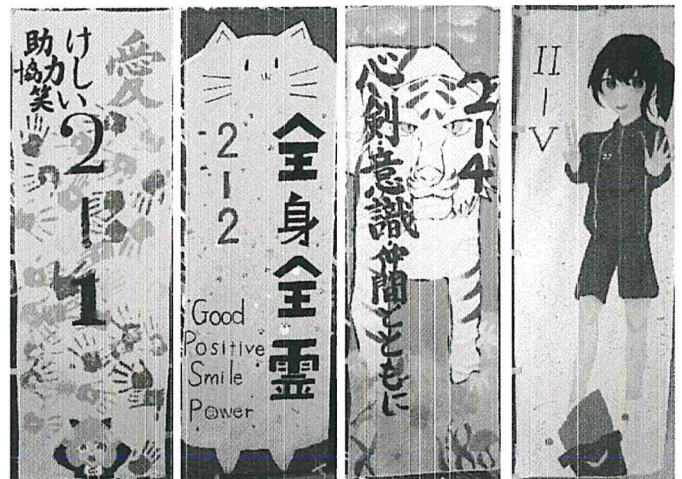 愛
助け
協力し
笑い
2-1
全身全霊
2-2
Good
Positive
Smile
Power
2-4
心・剣・意識・仲間とともに
II-V